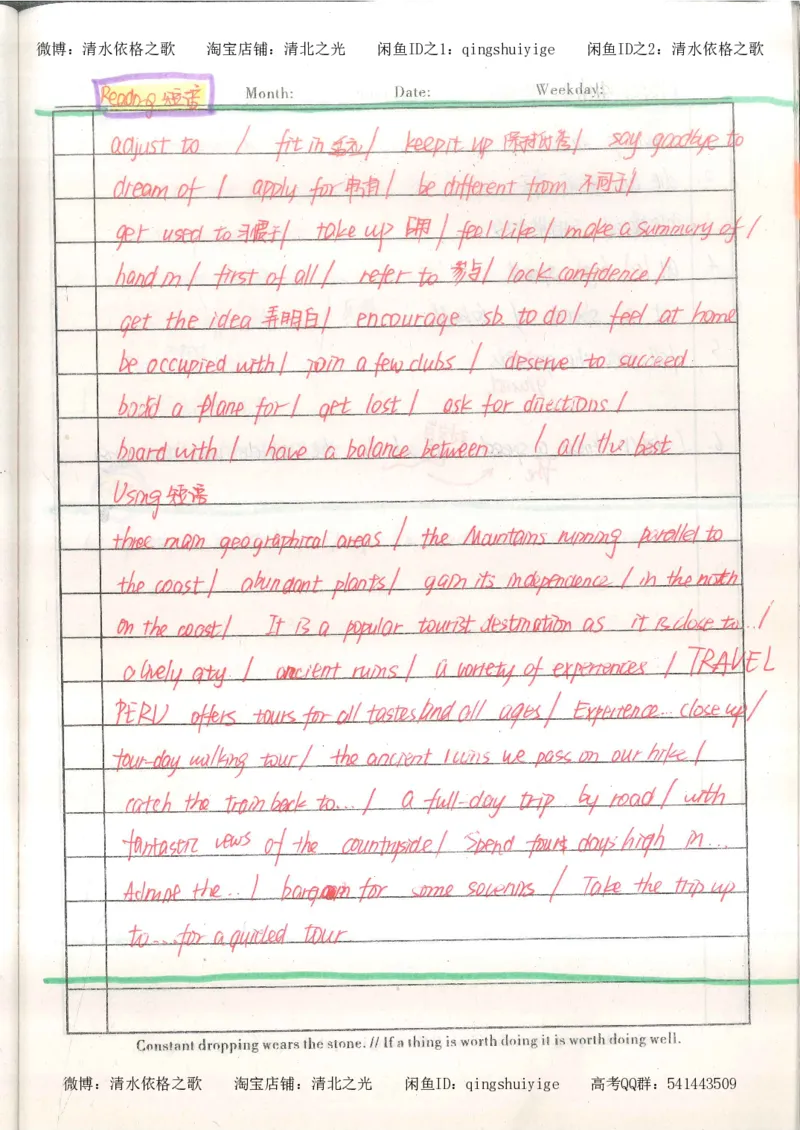 微博：清水依格之歌 淘宝店铺：清北之光 闲鱼ID之1：qingshuiyige 闲鱼ID之2：清水依格之歌
Reading 短语 Month: Date: Weekday:
adjust to / fit in / keep it up 保持 / say goodbye to
dream of / apply for 申请 / be different from 不同于 /
get used to 习惯于 / take up 占用 / feel like / make a summary of /
hand in / first of all / refer to / lack confidence /
get the idea 弄明白 / encourage sb. to do / feel at home
be occupied with / join a few clubs / deserve to succeed
board a plane for / get lost / ask for directions /
board with / have a balance between / all the best
Using 短语
three main geographical areas / the Mountains running parallel to
the coast / abundant plants / gain its independence / in the north
on the coast / It is a popular tourist destination as it is close to... /
a lively city / ancient ruins / a variety of experiences / TRAVEL
PERU offers tours for all tastes and all ages / Experience... close up /
four-day walking tour / the ancient ruins we pass on our hike /
catch the train back to... / a full-day trip by road / with
fantastic views of the countryside / Spend four days high in...
Admire the... / bargain for some / Take the trip up
to...for a guided tour
Constant dropping wears the stone. // If a thing is worth doing it is worth doing well.
微博：清水依格之歌 淘宝店铺：清北之光 闲鱼ID：qingshuiyige 高考QQ群：541443509